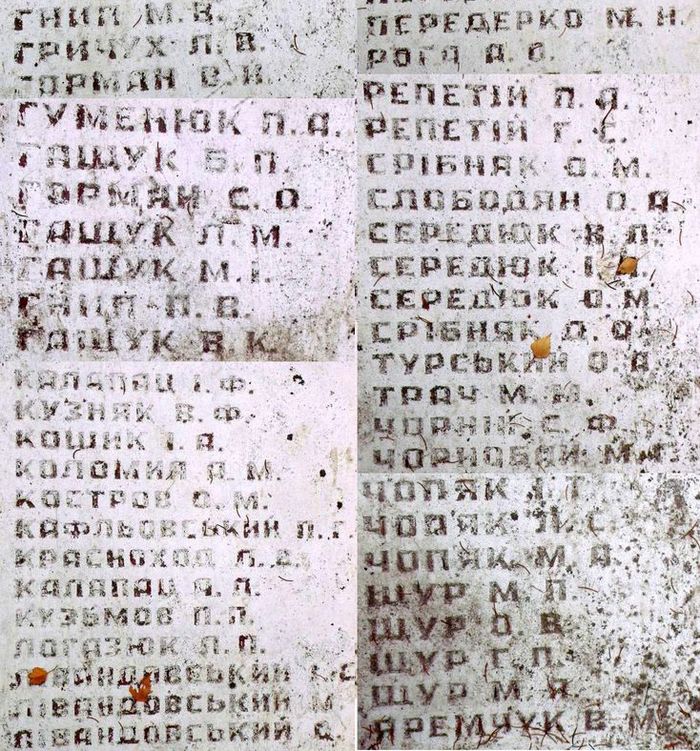 ГНИП М. В.
ГРИЧУХ Л. В.
ГОРМАН В. И.
ГУМЕНЮК П. А.
ГАЩУК Б. П.
ГОРМАН С. О.
ГАЩУК Л. М.
ГАЩУК М. І.
ГНИП П. В.
ГАЩУК В. К.
КАЛАПАЦ І. Ф.
КУЗНЯК В. Ф.
КОШИК І. А.
КОЛОМИЯ Д. М.
КОСТРОВ О. М.
КАФЛЬОВСЬКИЙ П. Г.
КРАСНОХОД Л. А.
КАЛАПАЦ А. Л.
КУЗЬМОВ П. П.
ЛОГАЗЮК Л. П.
ЛІВАНДОВСЬКИЙ С.
ЛІВАНДОВСЬКИЙ М
ЛІВАНДОВСЬКИЙ О.
ПЕРЕДЕРКО М. Н.
РОГА А. О.
РЕПЕТІЙ П. А.
РЕПЕТІЙ Г. Є.
СРІБНЯК О. М.
СЛОБОДЯН О. А.
СЕРЕДЮК В. Л.
СЕРЕДЮК І. А.
СЕРЕДЮК О. М.
СРІБНЯК Д. О.
ТУРСЬКИЙ О. А.
ТРАЧ М. М.
ЧОРНІЙ С. Ф.
ЧОРНОБАЙ М. Г.
ЧОПЯК І. Т.
ЧОПЯК И. С.
ЧОПЯК М. А.
ЩУР М. П.
ЩУР О. В.
ЩУР С. П.
ЩУР М. Я.
ЯРЕМЧУК В. М.